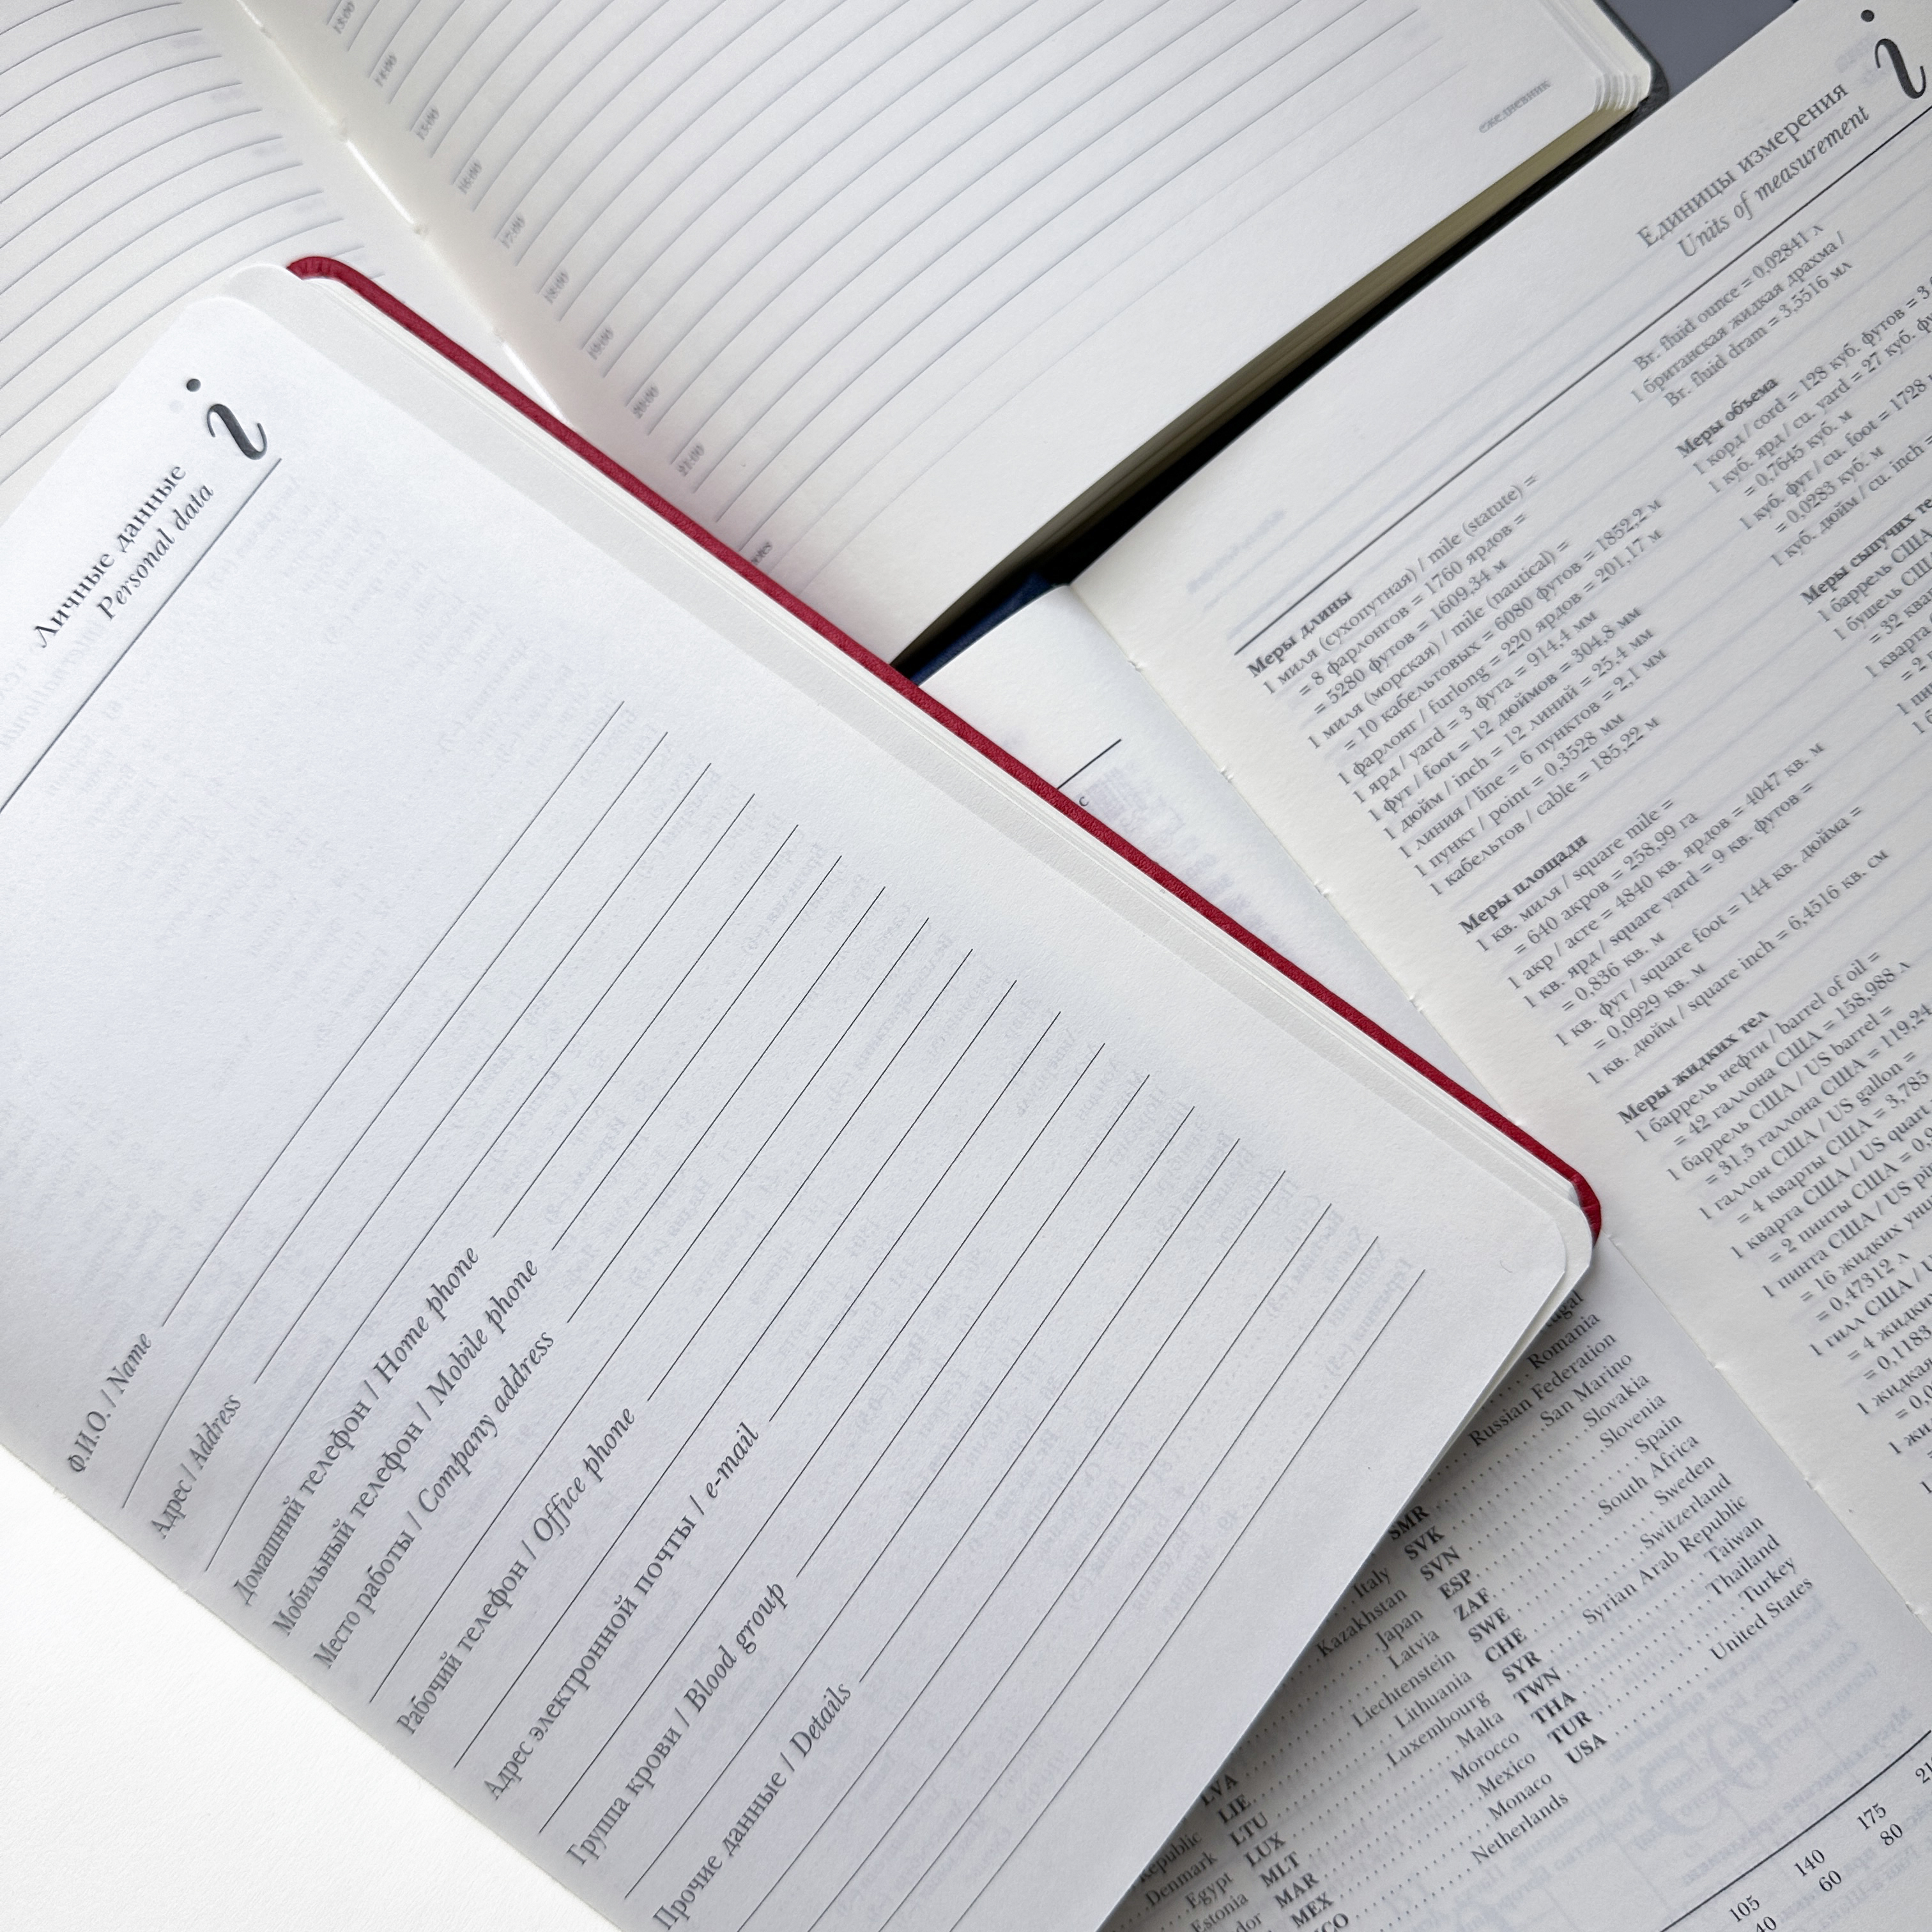 13:00
14:00
15:00
16:00
17:00
18:00
19:00
20:00
21:00
ежедневник
i
Личные данные
Personal data
Ф.И.О. / Name
Адрес / Address
Домашний телефон / Home phone
Мобильный телефон / Mobile phone
Место работы / Company address
Рабочий телефон / Office phone
Адрес электронной почты / e-mail
Группа крови / Blood group
Прочие данные / Details
i
Единицы измерения
Units of measurement
Меры длины
1 миля (сухопутная) / mile (statute) =
= 8 фарлонгов = 1760 ярдов =
= 5280 футов = 1609,34 м
1 миля (морская) / mile (nautical) =
= 10 кабельтовых = 6080 футов = 1852,2 м
1 фарлонг / furlong = 220 ярдов = 201,17 м
1 ярд / yard = 3 фута = 914,4 мм
1 фут / foot = 12 дюймов = 304,8 мм
1 дюйм / inch = 12 линий = 25,4 мм
1 линия / line = 6 пунктов = 2,1 мм
1 пункт / point = 0,3528 мм
1 кабельтов / cable = 185,22 м
Меры площади
1 кв. миля / square mile =
= 640 акров = 258,99 га
1 акр / acre = 4840 кв. ярдов = 4047 кв. м
1 кв. ярд / square yard = 9 кв. футов =
= 0,836 кв. м
1 кв. фут / square foot = 144 кв. дюйма =
= 0,0929 кв. м
1 кв. дюйм / square inch = 6,4516 кв. см
Меры жидких тел
1 баррель нефти / barrel of oil =
= 42 галлона США = 158,988 л
1 баррель США / US barrel =
= 31,5 галлона США = 119,24
1 галлон США / US gallon =
= 4 кварты США = 3,785
1 кварта США / US quart
= 2 пинты США =
1 пинта США / US
= 16 жидких
= 0,47312 л
1 гилл США /
= 4
= 0,1183
Br. fluid ounce = 0,02841 л
1 британская жидкая драхма /
Br. fluid dram = 3,5516 мл
Меры объема
1 корд / cord = 128 куб. футов =
1 куб. ярд / cu. yard = 27 куб.
= 0,7645 куб. м
1 куб. фут / cu. foot = 1728
= 0,0283 куб. м
1 куб. дюйм / cu. inch =
Меры сыпучих
1 баррель США
1 бушель США
= 32
1 кварта
Romania
Russian Federation
SMR San Marino
SVK Slovakia
SVN Slovenia
ESP Spain
ZAF South Africa
SWE Sweden
CHE Switzerland
SYR Syrian Arab Republic
TWN Taiwan
THA Thailand
TUR Turkey
USA United States
Italy
Kazakhstan
Japan
LVA Latvia
LIE Liechtenstein
LTU Lithuania
LUX Luxembourg
MLT Malta
MAR Morocco
MEX Mexico
Monaco
Netherlands
Republic
Denmark
Egypt
Estonia
105 140 175
60 80